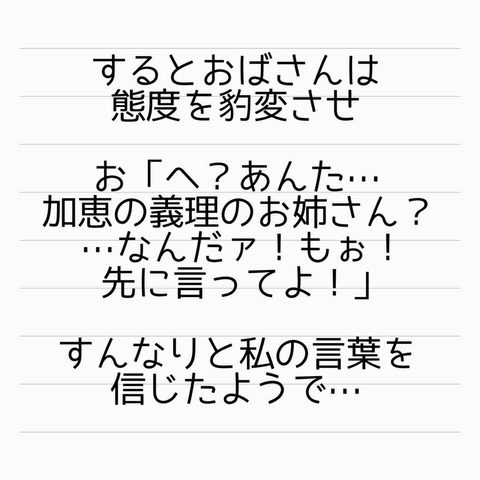 するとおばさんは
態度を豹変させ
お「へ？あんた…
加恵の義理のお姉さん？
…なんだァ！もぉ！
先に言ってよ！」
すんなりと私の言葉を
信じたようで…